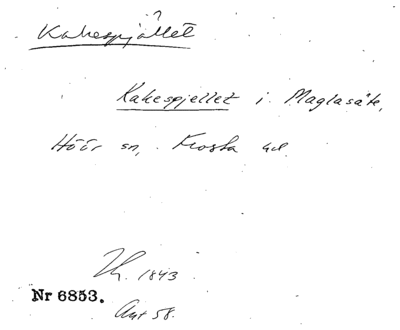 ?
Kakespjället
Kakespjellet i Maglasäte,
Höör sn, Frosta hd.
Th. 1843
Nr 6853.
Ant 58.